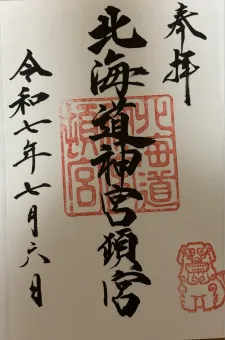 奉拝
北海道神宮頓宮
北海道
頓宮
令和七年七月六日